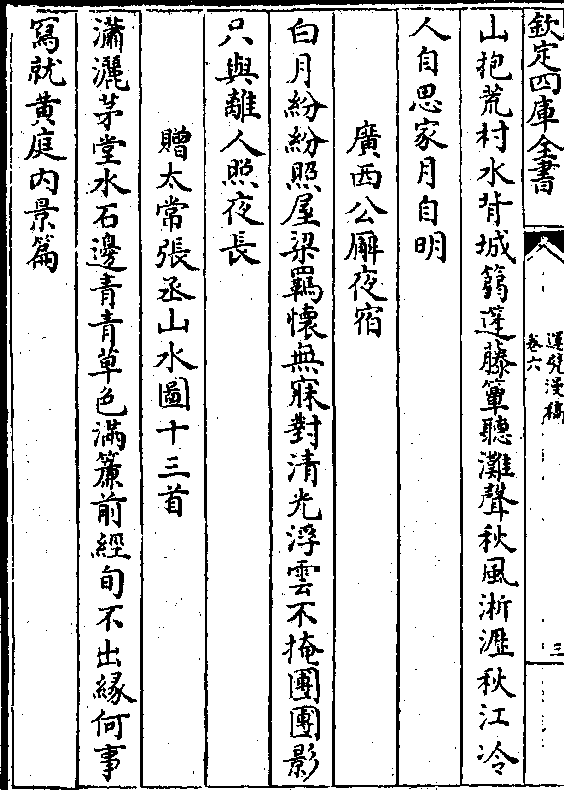 欽定四庫全書
運甓漫稿
卷六
三
山抱荒村水背城篛蓬藤簟聽灘聲秋風淅瀝秋江冷
人自思家月自明
廣西公廨夜宿
白月紛紛照屋梁羈懷無寐對清光浮雲不掩團團影
只與離人照夜長
贈太常張丞山水圖十三首
瀟灑茅堂水石邊青青草色滿簾前經旬不出緣何事
寫就黄庭内景篇